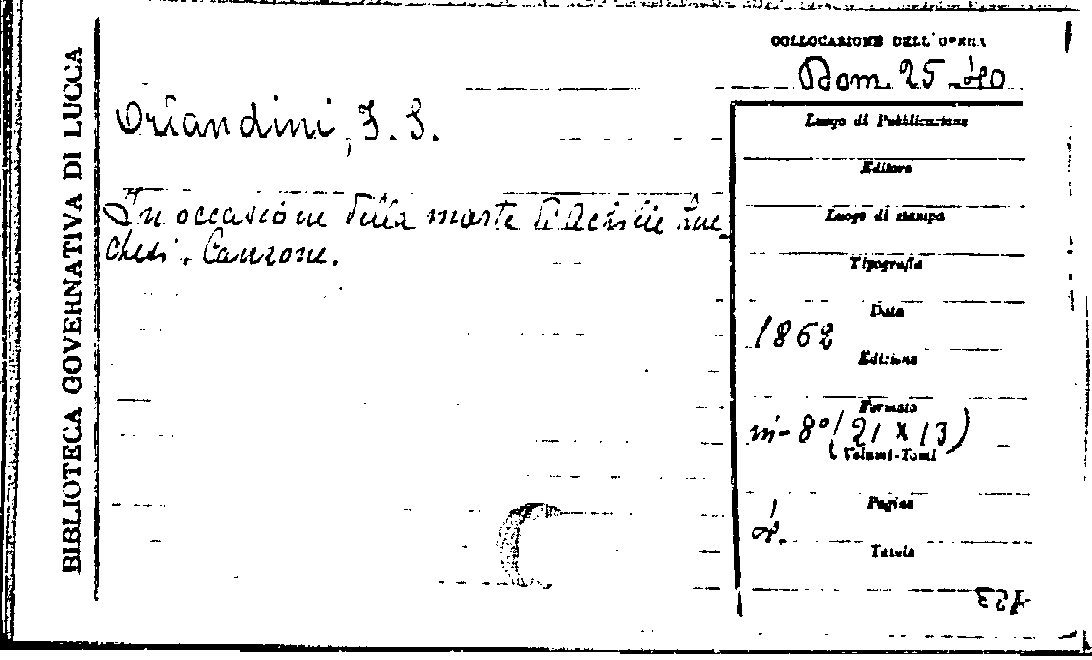 BIBLIOTECA GOVERNATIVA DI LUCCA
COLLOCAZIONE DELL'OPERA
Bom. 25 40
Orlandini, F. S.
Luogo di Pubblicazione
Editore
In occasione della morte di Achille Luc
chesi. Canzone.
Luogo di stampa
Tipografia
Data
1862
Edizione
Formato
in-8° (21 X 13)
Volumi-Tomi
Pagine
Tavole